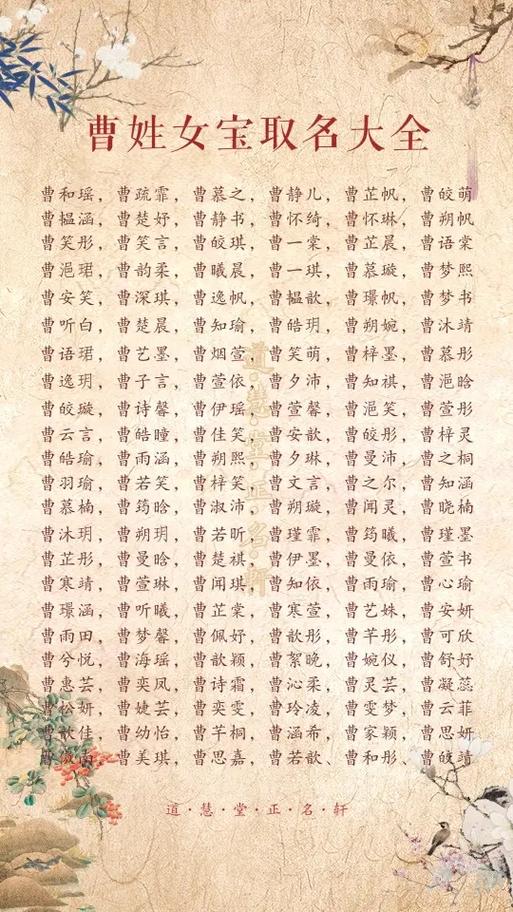 曹姓女宝取名大全
曹和瑶，曹疏霏，曹慕之，曹静儿，曹芷帆，曹皎萌
曹揾涵，曹楚妤，曹静书，曹怀绮，曹怀琳，曹朔帆
曹笑彤，曹笑言，曹皎琪，曹一棠，曹芷晨，曹语棠
曹浥珺，曹韵柔，曹曦晨，曹一琪，曹慕璇，曹梦熙
曹安笑，曹深琪，曹逸帆，曹揾歆，曹璟帆，曹梦书
曹听白，曹楚晨，曹知瑜，曹皓玥，曹朔婉，曹沐靖
曹语珺，曹艺墨，曹烟萱，曹笑萌，曹梓墨，曹慕彤
曹逸玥，曹子言，曹萱依，曹夕沛，曹知祺，曹浥晗
曹皎璇，曹诗馨，曹伊瑶，曹萱馨，曹浥笑，曹萱彤
曹云言，曹皓瞳，曹佳笑，曹安歆，曹皎彤，曹梓灵
曹皓瑜，曹雨涵，曹朔熙，曹夕琳，曹曼沛，曹之桐
曹羽瑜，曹若笑，曹梓笑，曹文言，曹之尔，曹知涵
曹慕楠，曹筠晗，曹淑沛，曹朔璇，曹闻灵，曹晓楠
曹沐玥，曹朔玥，曹若昕，曹瑾霏，曹筠曦，曹瑾墨
曹芷彤，曹曼晗，曹楚祺，曹伊墨，曹曼依，曹萱书
曹寒靖，曹萱琳，曹闻琪，曹知依，曹雨瑜，曹心瑜
曹璟涵，曹听曦，曹芷棠，曹寒萱，曹艺姝，曹安妍
曹雨田，曹梦馨，曹佩妤，曹歆彤，曹芊彤，曹可欣
曹兮悦，曹海瑶，曹歆颖，曹絮晚，曹婉仪，曹舒妤
曹惠芸，曹奕凤，曹诗霜，曹沁柔，曹灵芸，曹凝蕊
曹松妍，曹婕芸，曹奕雯，曹玲凌，曹雯梦，曹云菲
曹歆佳，曹幼怡，曹芊桐，曹涵布，曹家颖，曹思妍
曹，曹美琪，曹思嘉，曹若歆、曹和彤、曹皎靖
道·慧·堂·正·名·轩
道·慧·堂·正·名·轩